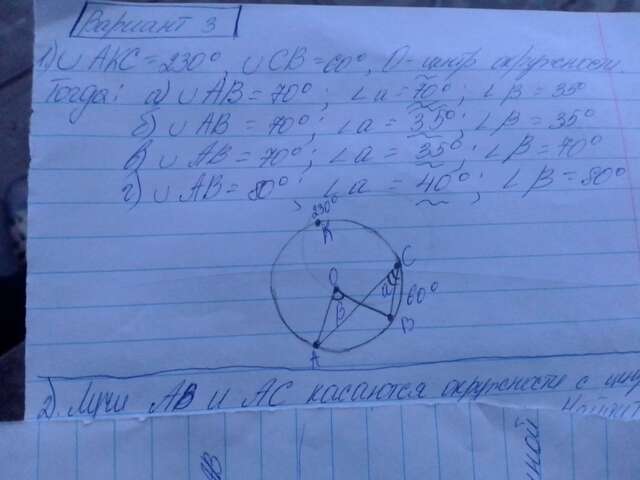 Вариант 3
1) ∪ AKC = 230°, ∪ CB = 60°, O - центр окружности.
Тогда: а) ∪ AB = 70°; ∠a = 70°; ∠β = 35°
б) ∪ AB = 70°; ∠a = 35°; ∠β = 35°
в) ∪ AB = 70°; ∠a = 35°; ∠β = 70°
г) ∪ AB = 80°; ∠a = 40°; ∠β = 80°
230°
K
C
O
a
60°
β
B
A
2) Лучи AB и AC касаются окружности с